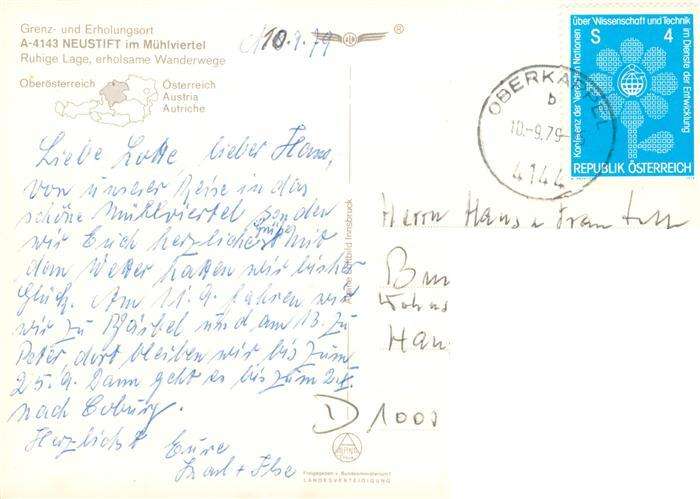 Grenz- und Erholungsort
A-4143 NEUSTIFT im Mühlviertel
Ruhige Lage, erholsame Wanderwege
Oberösterreich
Österreich
Austria
Autriche
10.9.79
®
Liebe Lotte, lieber Hans,
von unserer Reise in das
schöne Mühlviertel senden
wir Euch herzlichst Grüße mit
dem Wetter hatten wir bisher
Glück. Am 11.9. fahren wir
wir zu Bärbel und am 13. zu
Peter dort bleiben wir bis zum
25.9. Dann geht es bis zum
nach Coburg.
Herzlichst Eure
Karl + Ilse
Alpine Luftbild Innsbruck
Freigegeben v. Bundesministerium f.
LANDESVERTEIDIGUNG
Konferenz der Vereinten Nationen
über Wissenschaft und Technik
im Dienste der Entwicklung
S 4
REPUBLIK ÖSTERREICH
OBERKAPPEL
b
10.-9.79
4144
Herrn Hans u Frau
Han
D 1000